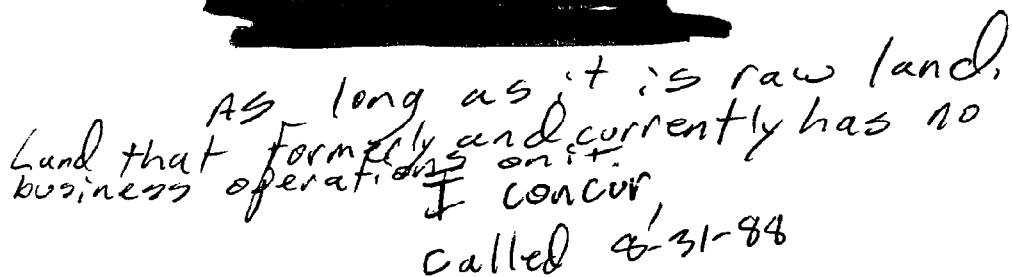 As long as it is raw land.
Land that formerly and currently has no
business operations on it.
I concur,
called 8-31-88